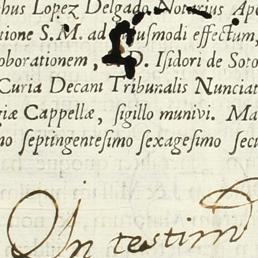 hus Lopez Delgado Notarius Apo
ione S.M. ad usmodi effectum,
oborationem, D. Isidori de Soto
Curia Decani Tribunalis Nunciat
iæ Cappellæ, sigillo munivi. Ma
o septingentesimo sexagesimo secu
In testim